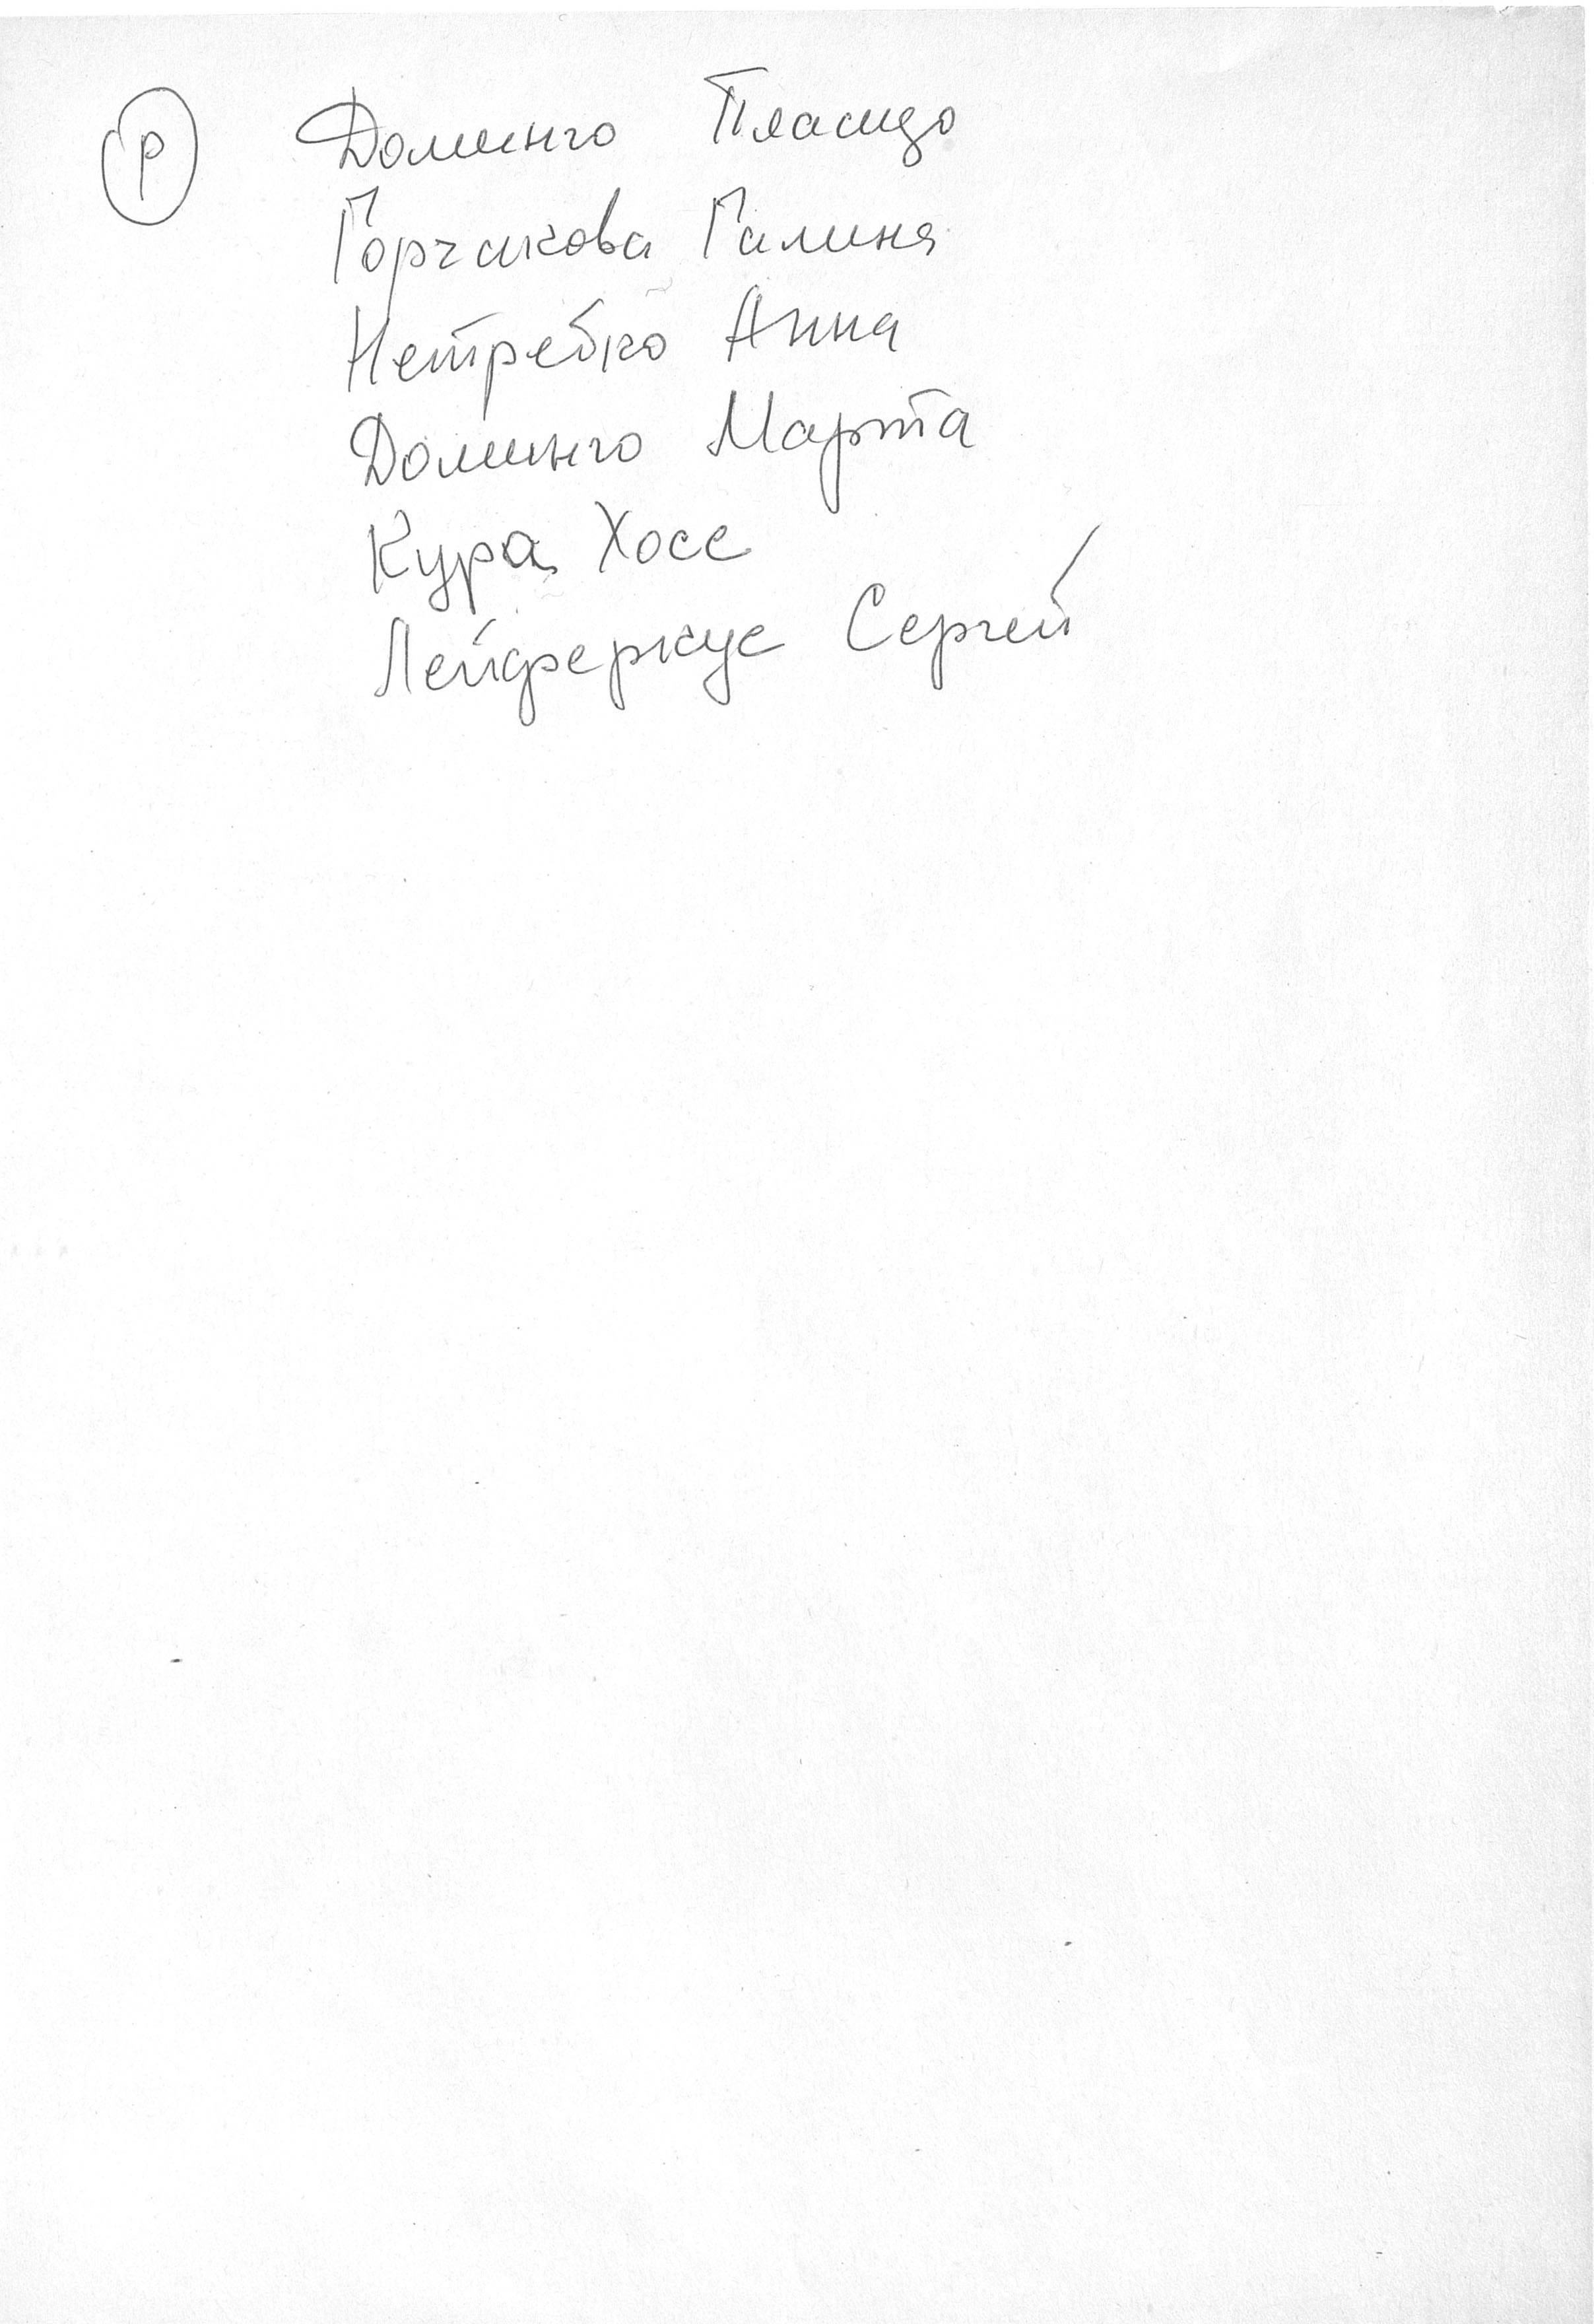 р Доминго Пласидо
Горчакова Галина
Нетребко Анна
Доминго Марта
Кура Хосе
Лейферкус Сергей